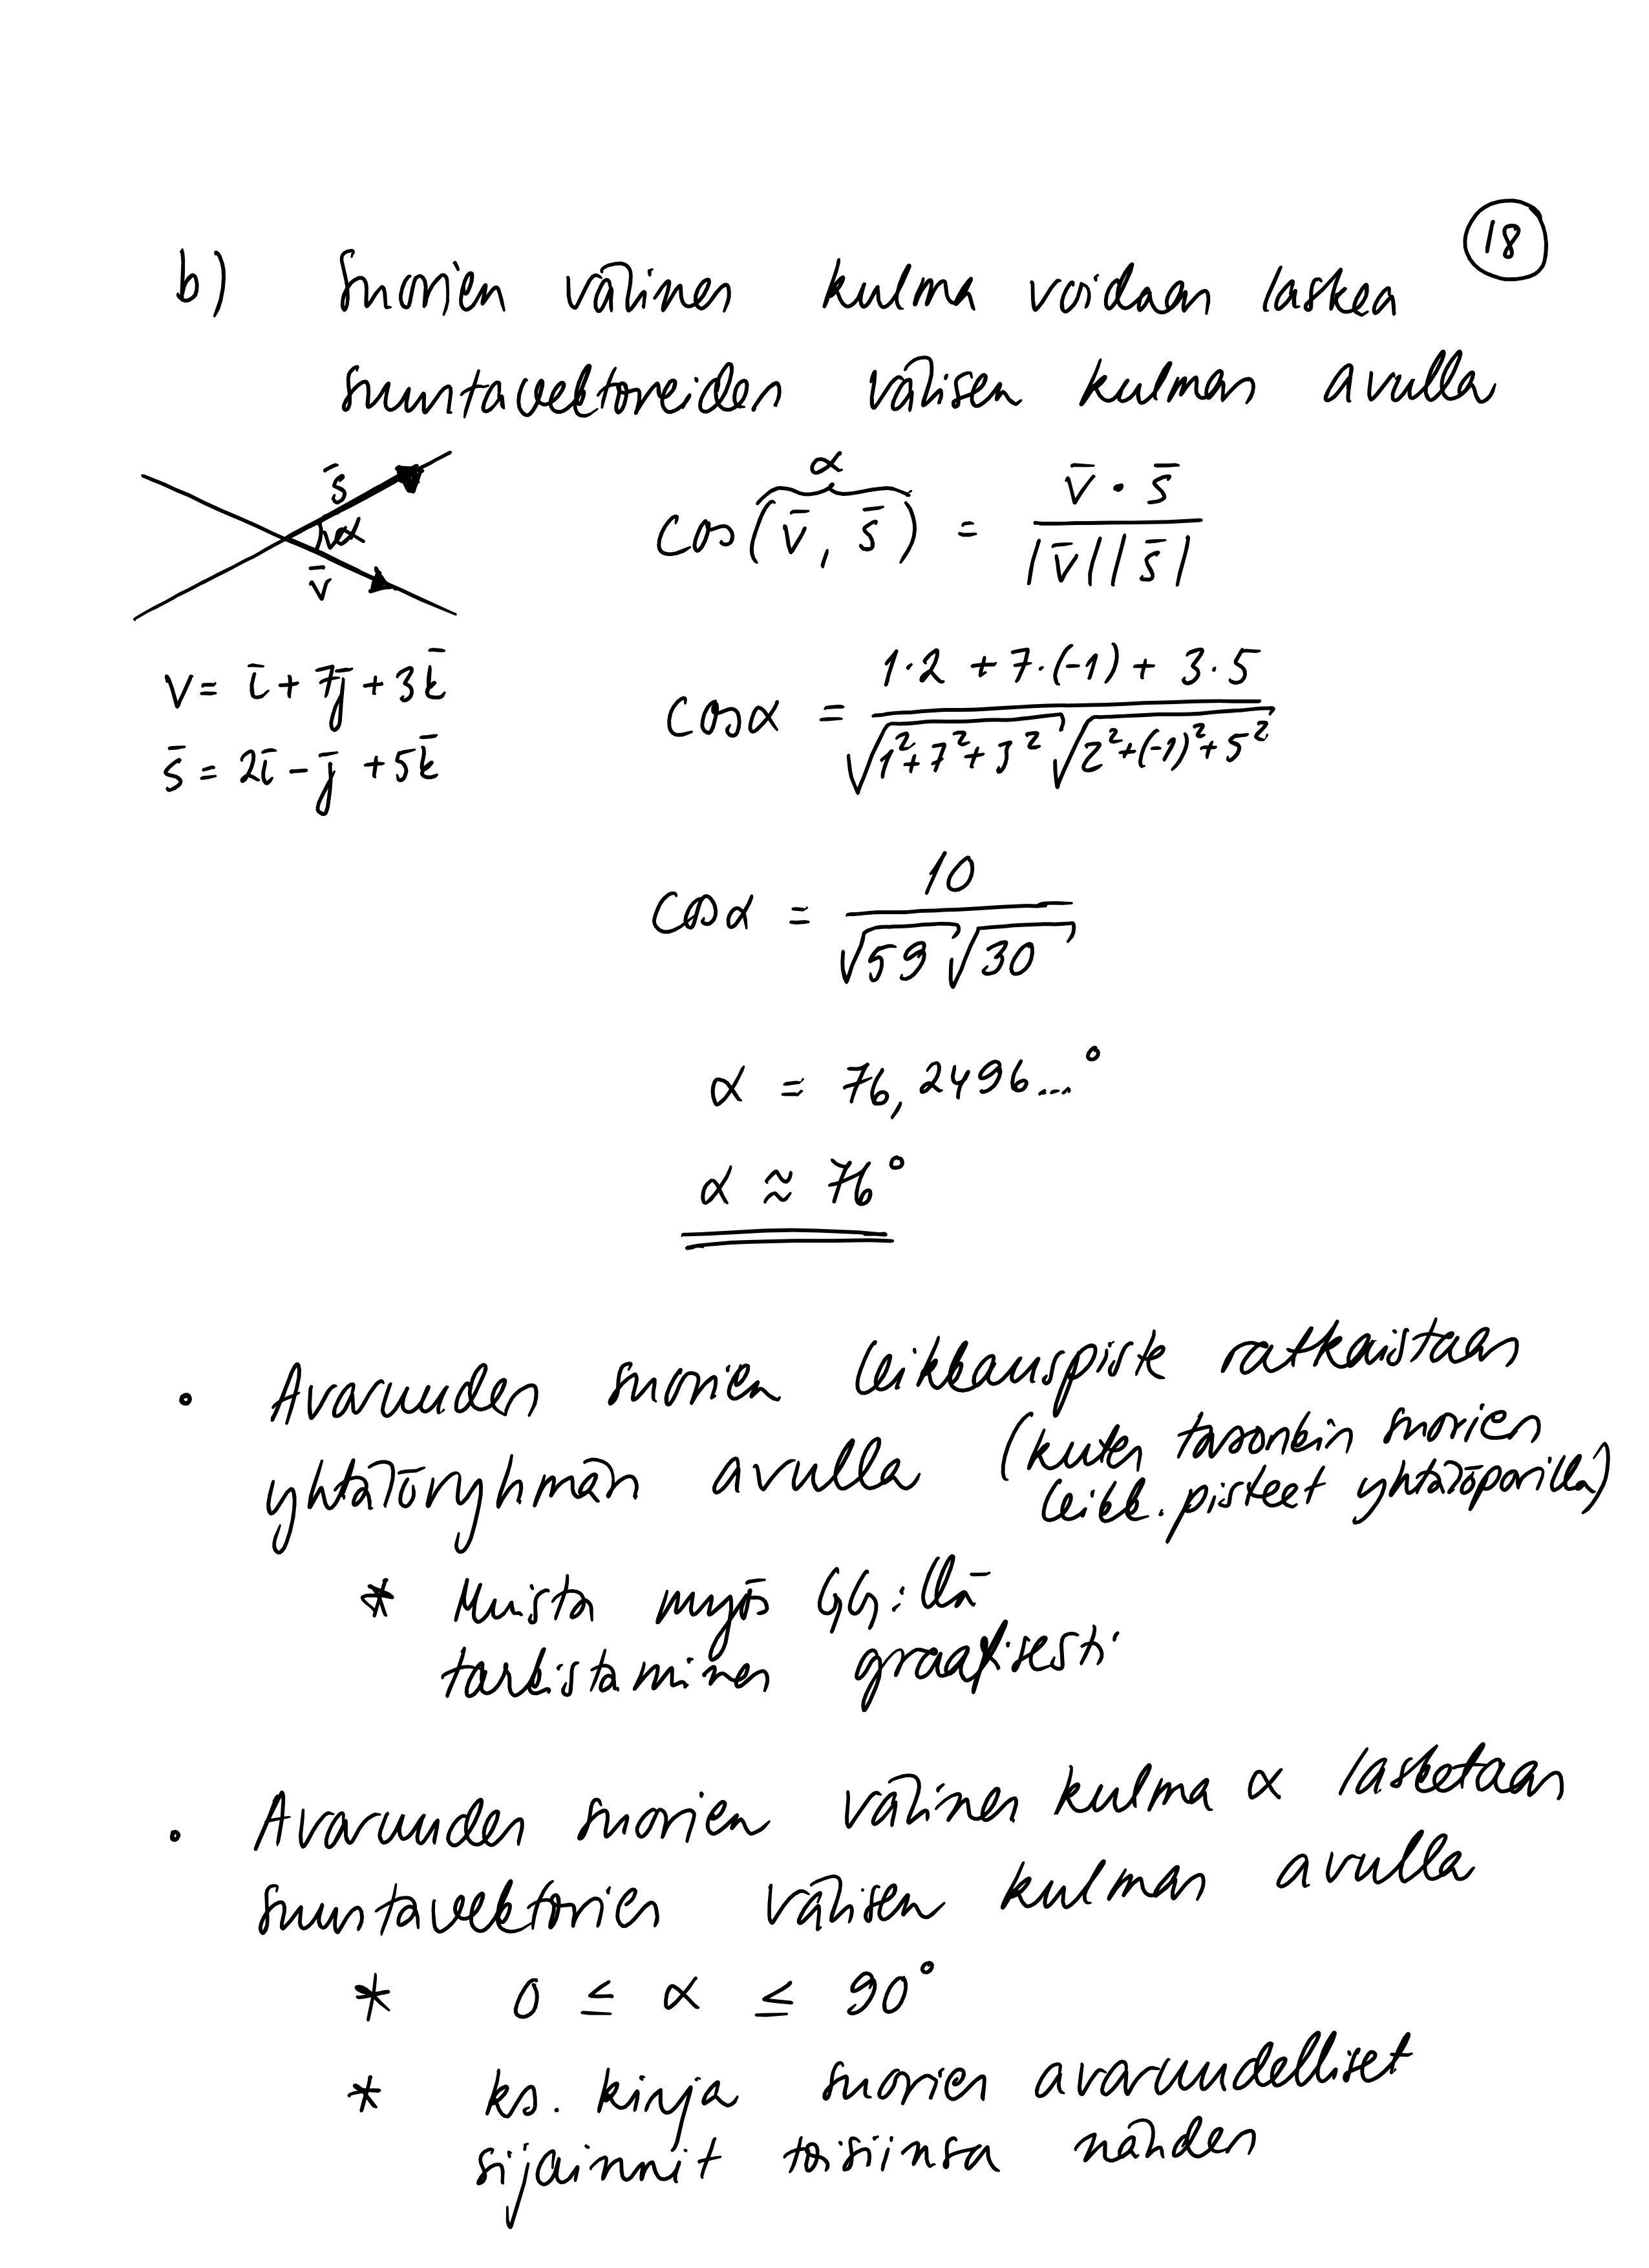 18
b) Suorien välinen kulma voidaan laskea
suuntavektoreiden välisen kulman avulla
s̄
α
v̄
v = ī + 7j̄ + 3k̄
s̄ = 2ī - j̄ + 5k̄
α
cos(v̄, s̄) = v̄ · s̄ / |v̄||s̄|
cosα = 1·2 + 7·(-1) + 3·5 / √1²+7²+3² √2²+(-1)²+5²
cosα = 10 / √59 √30
α = 76,2496...°
α ≈ 76°
• Avaruuden suorien leikkauspiste ratkaistaan
yhtälöryhmän avulla (kuten tasonkin suorien
leikk. pisteet yhtälöparilla)
* Muista myös GG:llä
tarkistaminen graafisesti
• Avaruuden suorien välinen kulma α lasketaan
suuntavektorien välisen kulman avulla
* 0 ≤ α ≤ 90°
* ks. kirja suorien avaruudelliset
sijainnit toisiinsa nähden